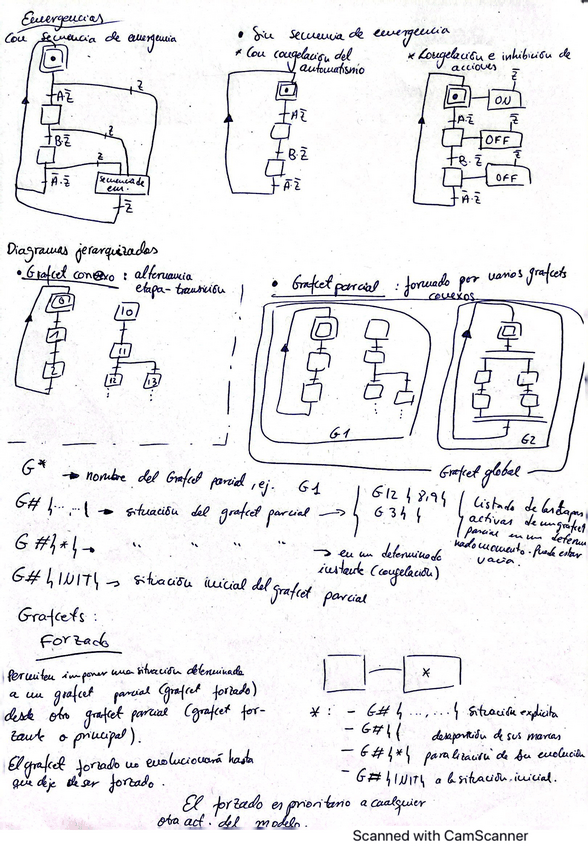 Emergencias
Con secuencia de emergencia
• Sin secuencia de emergencia
* Con congelación del
automatismo
* Congelación e inhibición de
acciones
z
A·z̄
z
B·z̄
z
Ā·z̄
secuencia de
em.
z̄
Az̄
B·z̄
Ā·z̄
z̄
ON
A·z̄
z̄
OFF
B·z̄
z̄
OFF
Ā·z̄
Diagramas jerarquizados
• Grafcet conexo : alternancia
etapa-transición
0
1
2
10
11
12
13
• Grafcet parcial : formado por varios grafcets
conexos
G1
G2
Grafcet global
G* → nombre del Grafcet parcial, ej. G1
G# {...} → situación del grafcet parcial → G12 {8,9}
G3 { }
Listado de las etapas
activas de un grafcet
parcial en un determi
nado momento. Puede estar
vacía.
G#{*} → " " " " → en un determinado
instante (congelación)
G# {INIT} → situación inicial del grafcet parcial
Grafcets:
Forzado
Permiten imponer una situación determinada
a un grafcet parcial (grafcet forzado)
desde otro grafcet parcial (grafcet for-
zante o principal).
El grafcet forzado no evolucionará hasta
que deje de ser forzado.
*
* : - G# {..., ...} situación explícita
- G#{ } desaparición de sus marcas
- G#{*} paralización de su evolución
- G#{INIT} a la situación inicial.
El forzado es prioritario a cualquier
otra act. del modelo.
Scanned with CamScanner